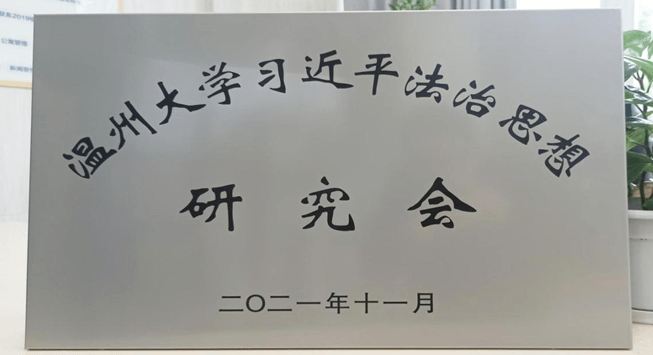 温州大学习近平法治思想
研究会
二〇二一年十一月
公寓管理